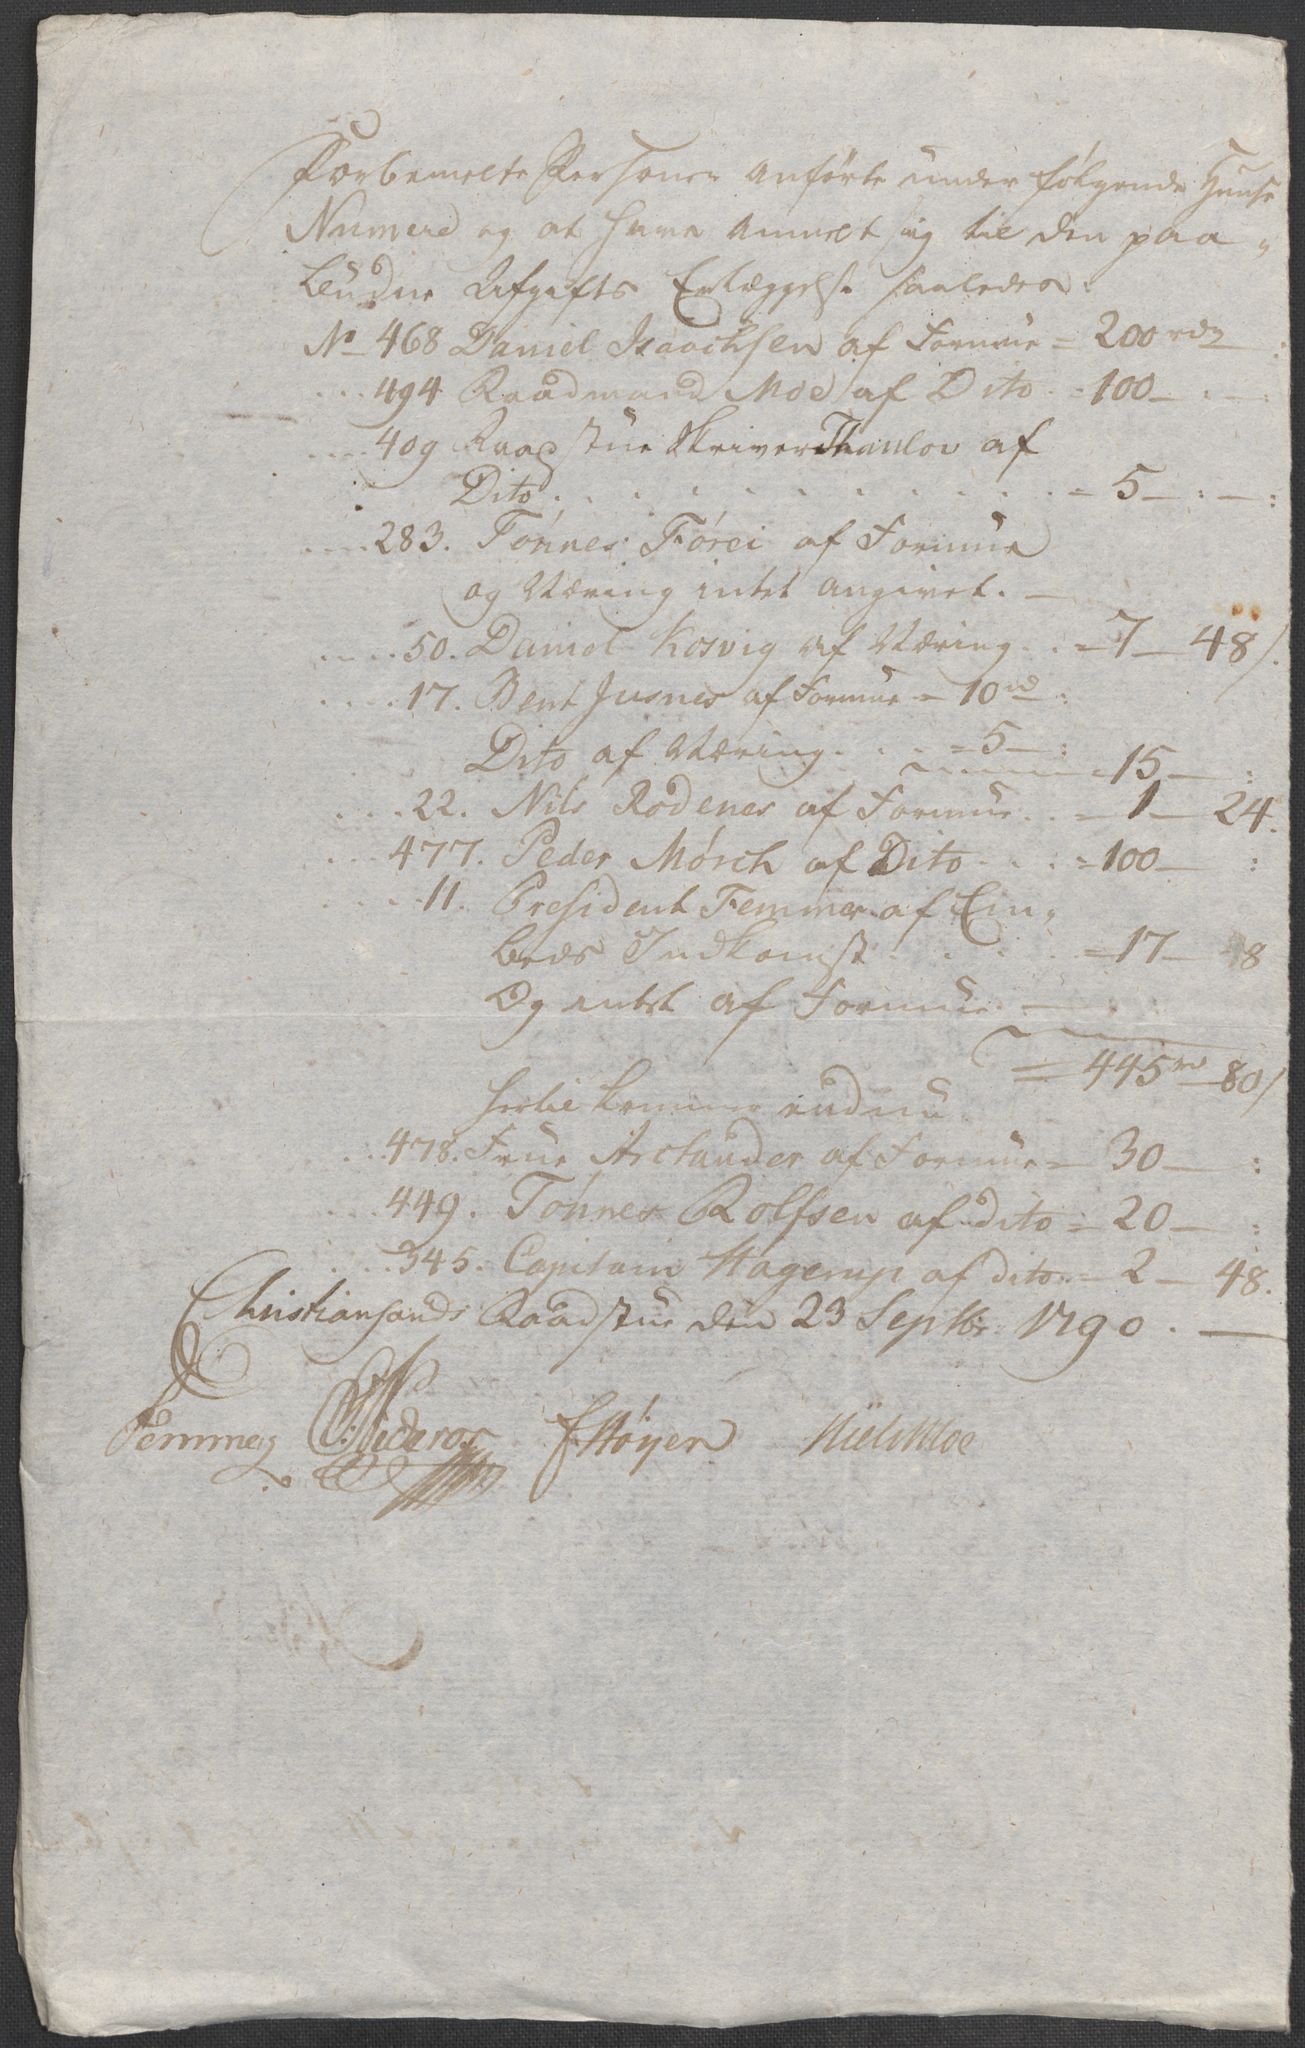 Forbemelte Personer anförte under følgende Huuse
Numere og at have anmelt sig til den paa-
budne Afgifts Erlæggelse saaledes:
No 468 Daniel Isaachsen af Formue = 200 rdr
... 494 Raadmand Moe af Dito . = 100 —
... 409 Raadstue Skriver Thaulov af
Dito . . . . . . . . . . = 5 — : — :
... 283. Tönnes Förei af Formue
og Næring intet angivet. —
... 50. Daniel Kosvig af Næring . . = 7 — 48/.
... 17. Bent Jusnes af Formue = 10 rd :
Dito af Næring . . . = 5 — :
= 15 — :
... 22. Nils Rodenes af Formue . . = 1 — 24.
... 477. Peder Mörch af Dito . . . = 100 — :
... 11. President Femmer af Em-
beds Indkomst . . . . = 17 — 8
Og intet af Formue. —
= 445 rd 80/
hertil kommer endnu
... 478. Frue Arctander af Formue = 30 — :
... 449. Tönnes Rolfsen af dito = 20 — :
... 345. Capitain Hagerup af dito = 2 — 48.
Christiansands Raadstue den 23 Septbr: 1790. —
Femmer Nideros Höyer Niels Moe